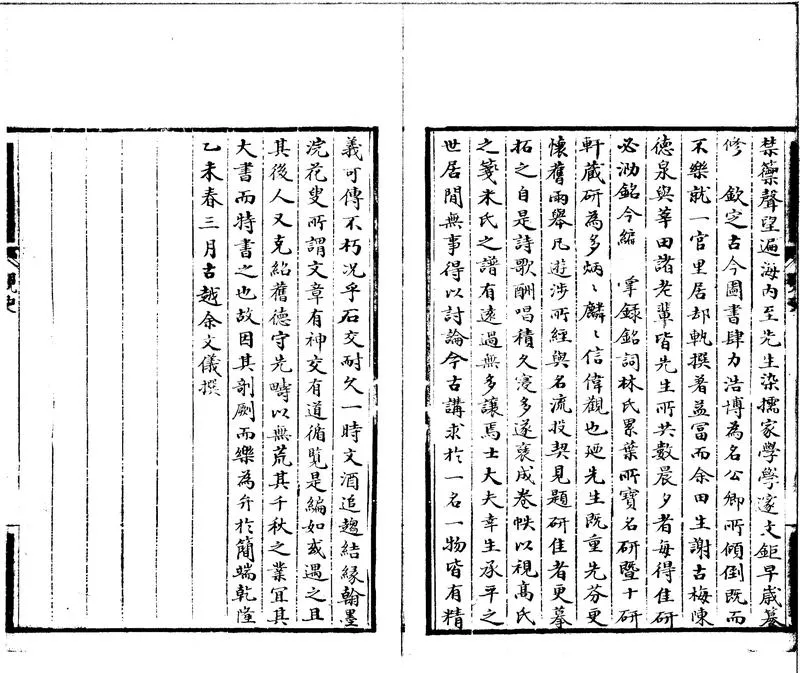 禁籞聲望遍海內至先生染擩家學學邃文鉅早歲纂
修　欽定古今圖書肆力浩博為名公卿所傾倒既而
不樂就一官里居却軌撰著益富而余田生謝古梅陳
德泉與莘田諸老輩皆先生所共數晨夕者每得佳研
必泐銘今編　掌錄銘詞林氏累葉所寶名研暨十研
軒藏研為多炳〻麟〻信偉觀也廼先生既重先芬更
懷舊雨舉凡遊涉所經與名流投契見題研佳者更摹
拓之自是詩歌酬唱積久寖多遂裒成卷帙以視高氏
之箋米氏之譜有遠過無多讓焉士大夫幸生承平之
世居閒無事得以討論今古講求於一名一物皆有精
義可傳不朽況乎石交耐久一時文酒追趨結緣翰墨
浣花叟所謂文章有神交有道循覽是編如或遇之且
其後人又克紹舊德守先疇以無荒其千秋之業宜其
大書而特書之也故因其剞劂而樂為弁於簡端乾隆
乙未春三月古越余文儀撰
硯史